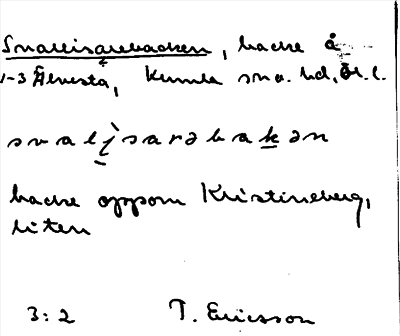 Snallisarebacken, backe å
1-3 Älvesta, Kumla sn o. hd, Ör. l.
snalisarəbakən
backe ovanom Kristineberg,
liten
3:2 T. Ericsson